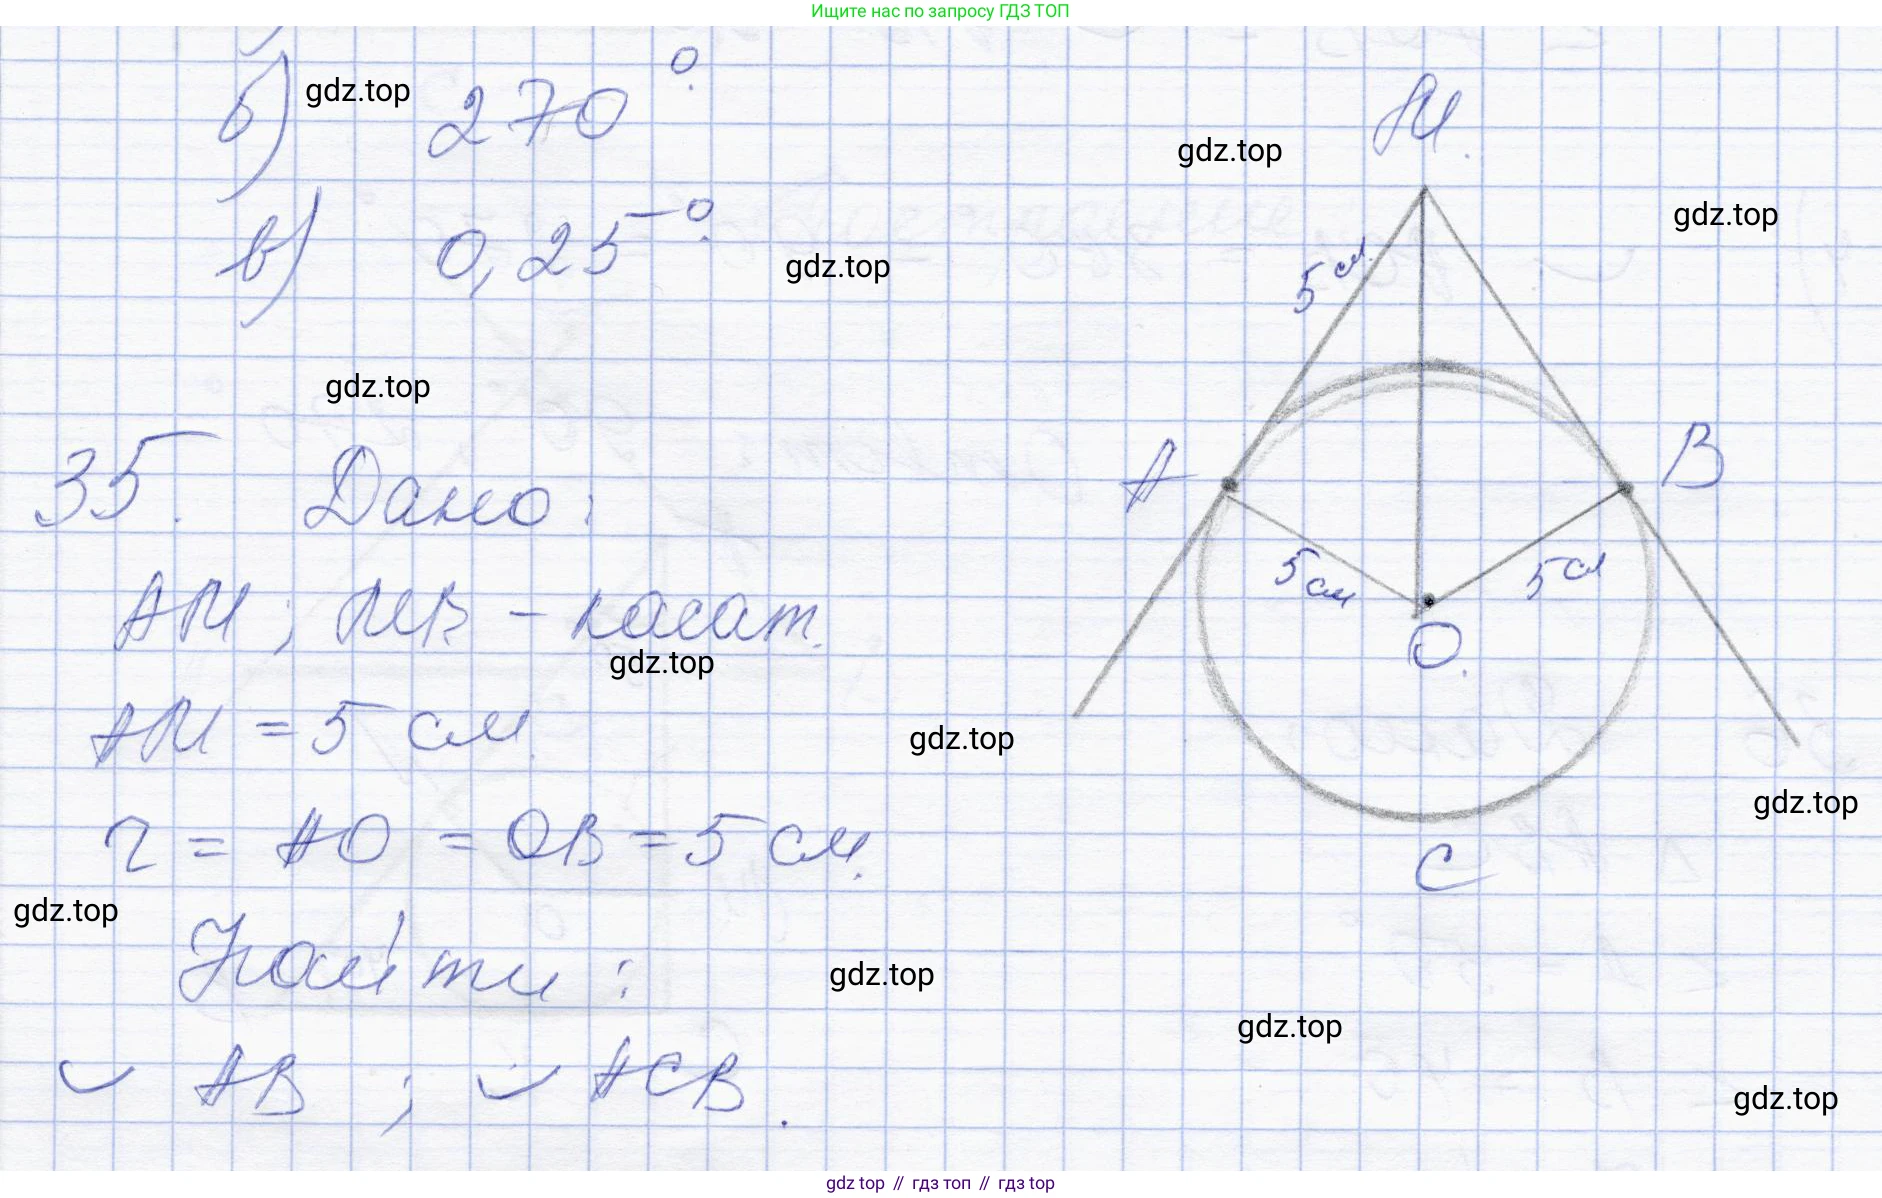 Ищите нас по запросу ГДЗ ТОП
б) 270°.
gdz.top
в) 0,25°.
gdz.top
gdz.top
35. Дано:
АМ; МВ - касат.
gdz.top
АМ = 5 см.
gdz.top
r = АО = ОВ = 5 см.
gdz.top
Найти:
gdz.top
◡ АВ ; ◡ АСВ.
М.
gdz.top
gdz.top
5 см.
А
В
5 см
5 см
О.
gdz.top
С
gdz.top
gdz.top
gdz top // гдз топ // гдз top